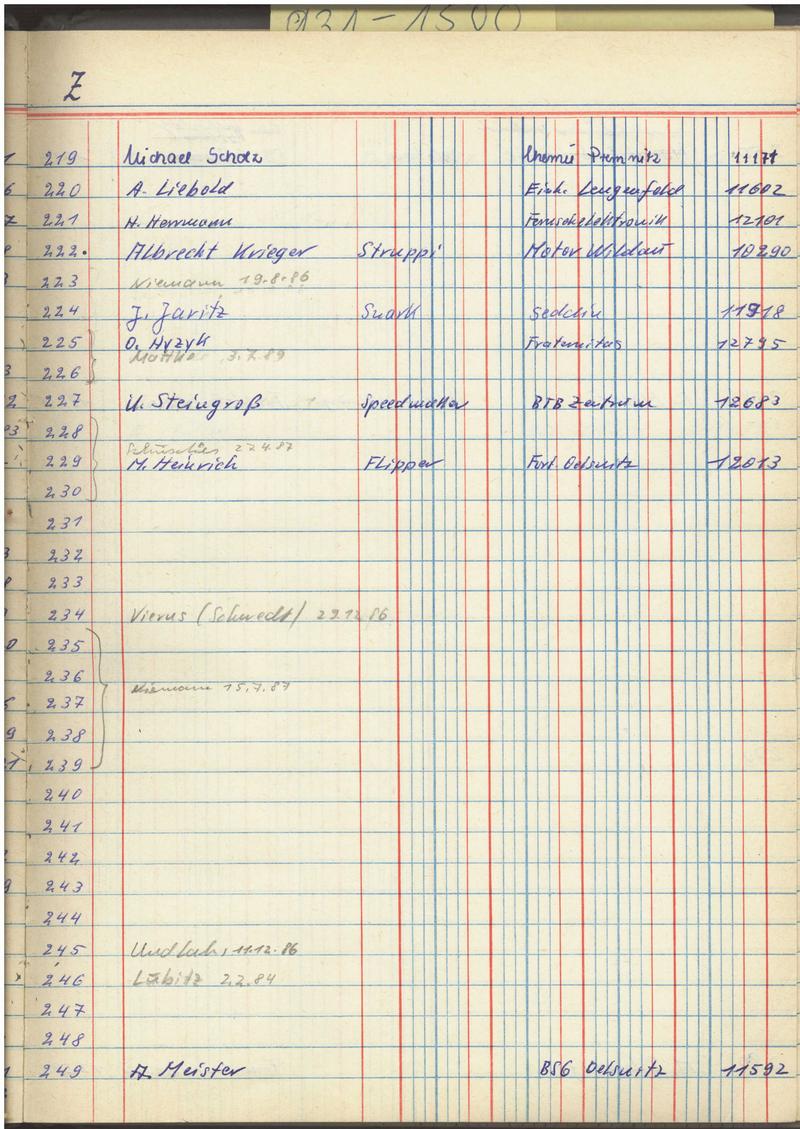 921-1500
Z
219 Michael Scholz Chemie Premnitz 11171
220 A. Liebold Einh. Lengenfeld 11602
221 H. Herrmann Fernsehelektronik 12101
222. Albrecht Krieger Struppi Motor Wildau 10290
223 Niemann 19.8.86
224 J. Jaritz Snark Seddin 11918
225 O. Hyzyk Fraternitas 12795
3.7.89
226
227 U. Steingroß BTB Zentrum 12683
228
27.4.87
229 M. Heinrich Flipper Fort. Oelsnitz 12013
230
231
232
233
234 Vierus (Schwedt) 29.12.86
235
236
Niemann 15.7.87
237
238
239
240
241
242
243
244
245 11.12.86
246 Lübitz 2.2.84
247
248
249 A. Meister BSG Oelsnitz 11592